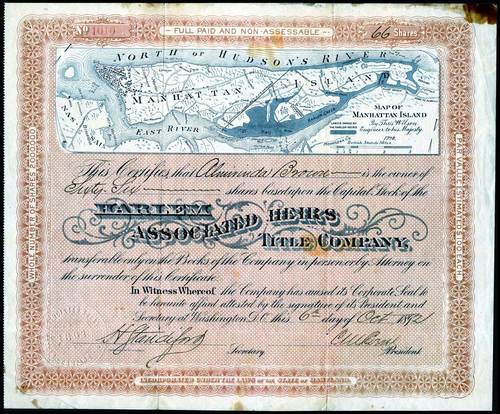 FULL PAID AND NON-ASSESSABLE
No
66 Shares
NORTH OR HUDSON'S RIVER
MANHATTAN ISLAND
EAST RIVER
MAP OF
MANHATTAN ISLAND
By Thos. Wilson
Engineer to his Majesty
British Statute Miles
WHOLE NUMBER OF SHARES 200,000.00
PAR VALUE ESTIMATED $100 EACH
This Certifies that Almirinda Brown is the owner of
Sixty Six shares based upon the Capital Stock of the
HARLEM
ASSOCIATED HEIRS
TITLE COMPANY,
transferable only on the Books of the Company in person or by Attorney on
the surrender of this Certificate.
In Witness Whereof the Company has caused its Corporate Seal to
be hereunto affixed attested by the signature of its President and
Secretary at Washington, D.C. this 6th day of Oct 1892
Secretary
President
INCORPORATED UNDER THE LAWS OF THE STATE OF